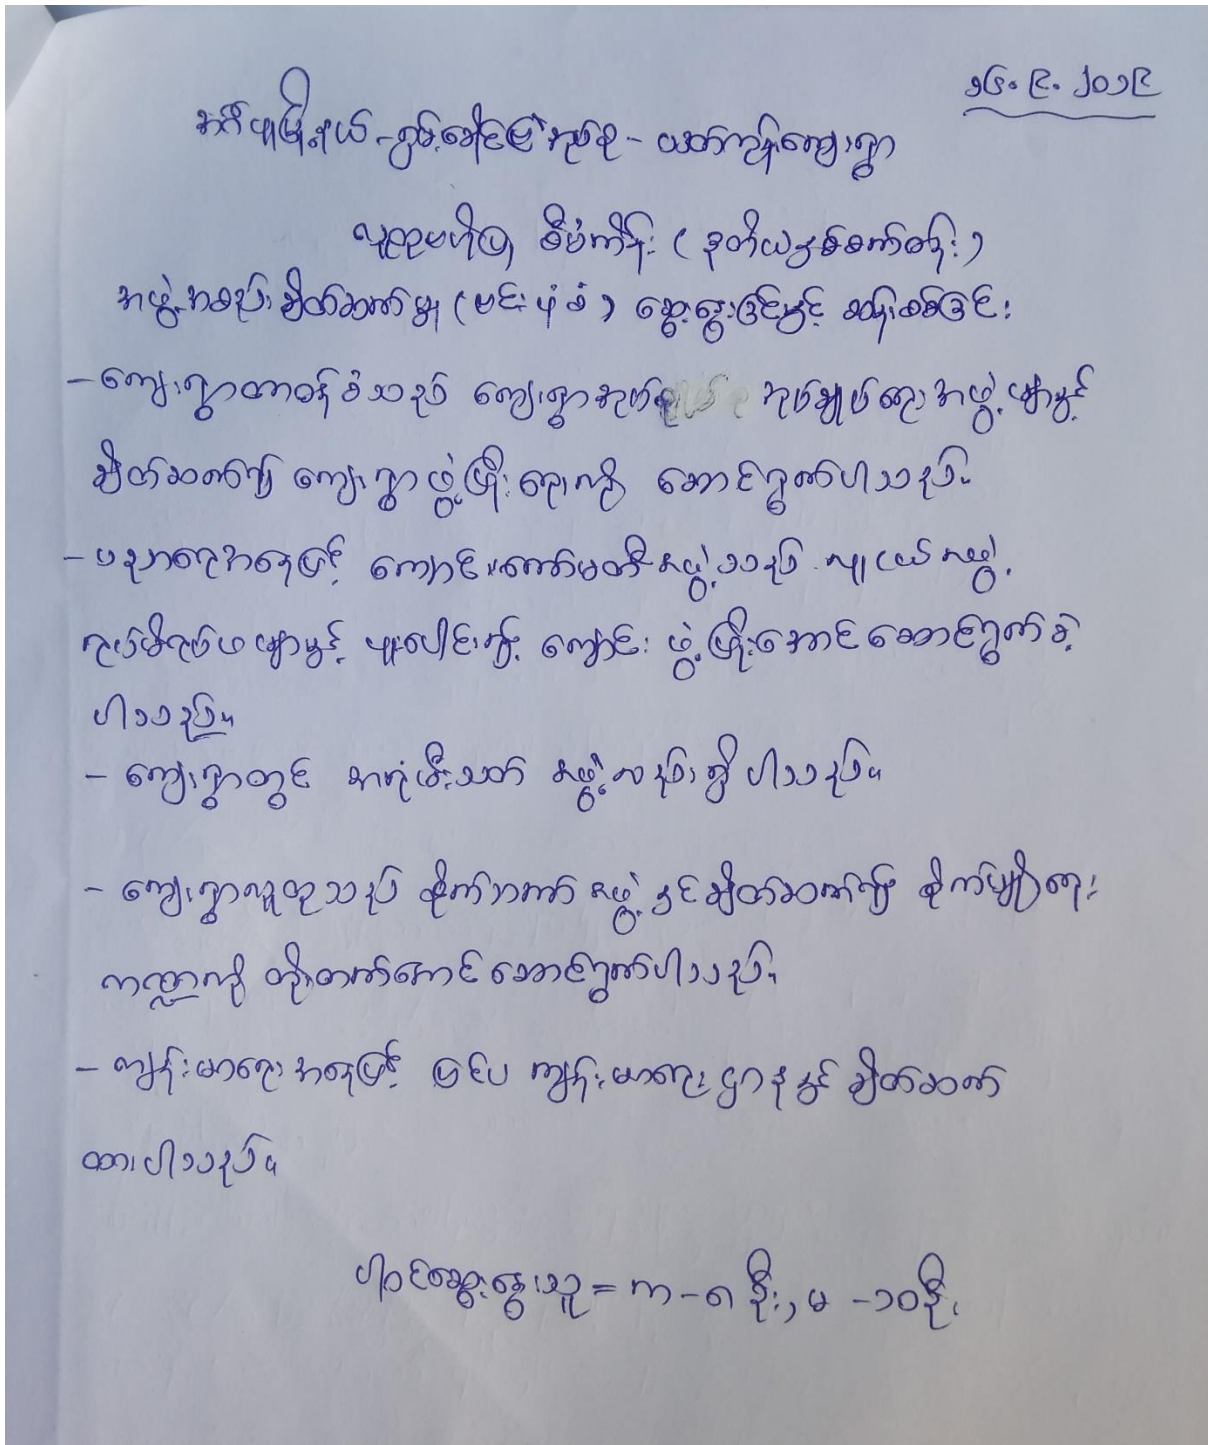 ၁၆. ၉. ၂၀၁၉
အင်္ဂပူမြို့နယ် - ရွှမ်းခေါင်မြဲအုပ်စု - ယက်ကုန်းကျေးရွာ
လူထုဗဟိုပြု စီမံကိန်း (ဒုတိယနှစ်စက်ဝန်း)
အဖွဲ့အစည်းချိတ်ဆက်မှု (ဗင်းပုံစံ) ဆွေးနွေးခြင်းနှင့် ဆန်းစစ်ခြင်း
- ကျေးရွာတာဝန်ခံသည် ကျေးရွာအုပ်စု အုပ်ချုပ်ရေးအဖွဲ့များနှင့်
ချိတ်ဆက်၍ ကျေးရွာဖွံ့ဖြိုးရေးကို ဆောင်ရွက်ပါသည်။
- ပညာရေးအနေဖြင့် ကျောင်းကော်မတီအဖွဲ့သည် လူငယ်အဖွဲ့
ရပ်မိရပ်ဖများနှင့် ပူးပေါင်း၍ ကျောင်း ဖွံ့ဖြိုးအောင်ဆောင်ရွက်ခဲ့
ပါသည်။
- ကျေးရွာတွင် အရံမီးသတ် အဖွဲ့လည်းရှိပါသည်။
- ကျေးရွာလူထုသည် စိုက်ဘဏ် အဖွဲ့နှင့်ချိတ်ဆက်၍ စိုက်ပျိုးရေး
ကဏ္ဍကို တိုးတက်အောင်ဆောင်ရွက်ပါသည်။
- ကျန်းမာရေးအနေဖြင့် မြင်ပ ကျန်းမာရေးဌာနနှင့် ချိတ်ဆက်
ထားပါသည်။
ပါဝင်ဆွေးနွေးသူ = ကျ - ၈ ဦး, မ - ၁၀ဦး